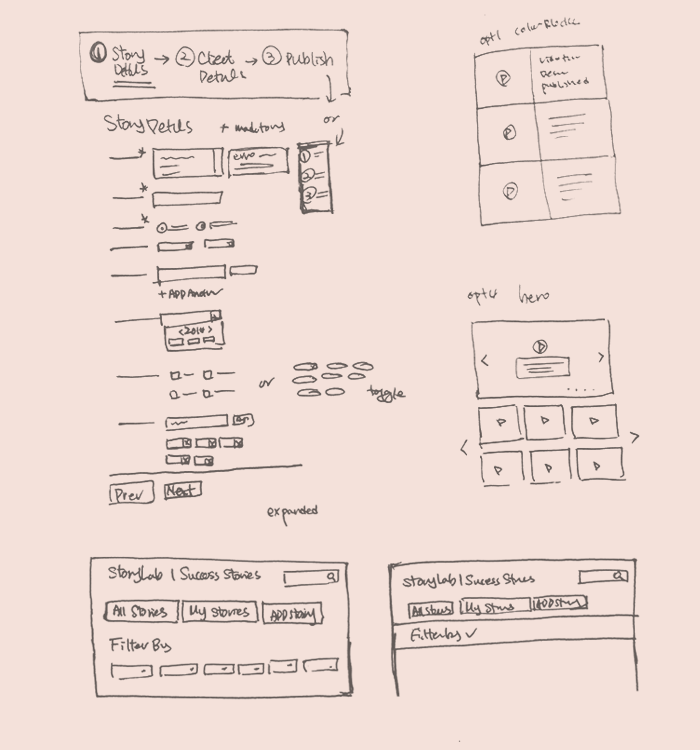 1 Story Details → 2 Client Details → 3 Publish
or
Story Details
+ mandatory
error
1
2
3
+ ADD Another
<2014>
or
toggle
Prev
Next
opt1 color-blocks
published
hero
expanded
StoryLab | Success Stories
All Stories
My Stories
ADD story
Filter By
StoryLab | Success Stories
All Stories
My Stories
ADD story
Filter by